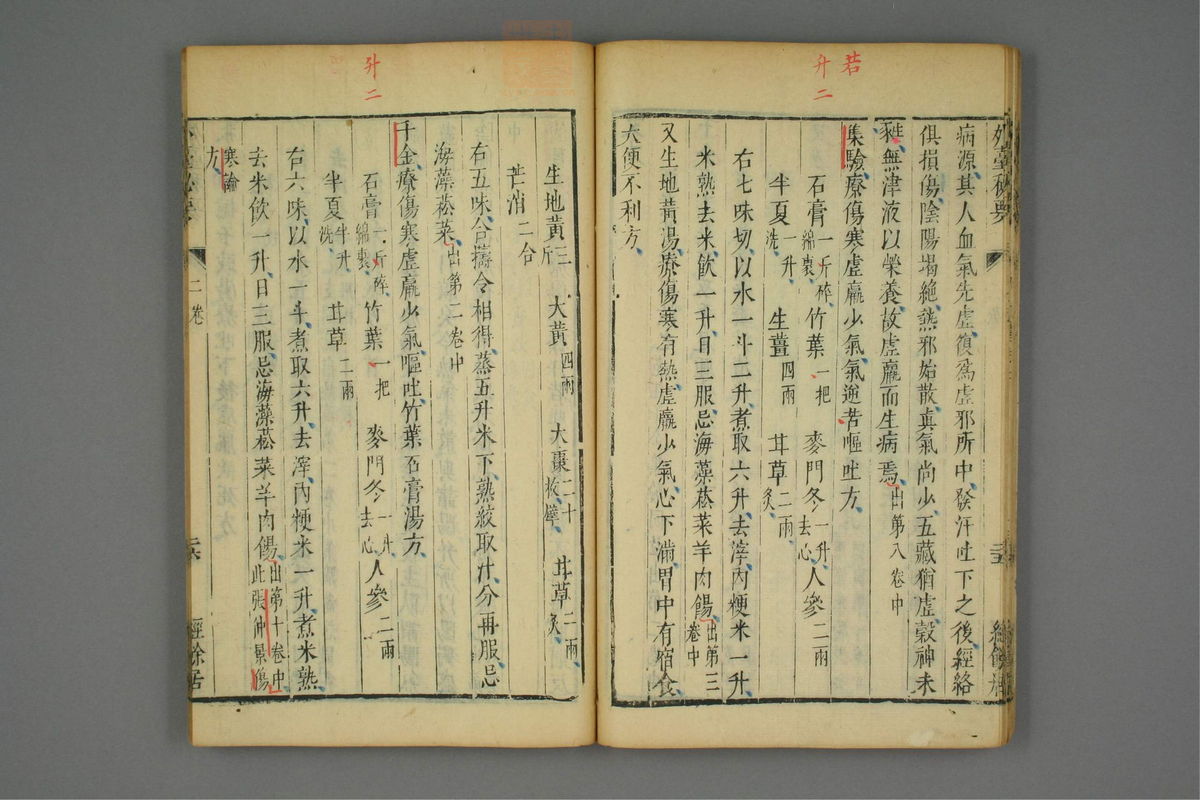 若
升二
外臺秘要
病源其人血氣先虛復爲虛邪所中發汗吐下之後經絡
俱損傷陰陽竭絕熱邪始散眞氣尚少五藏猶虛穀神未
無津液以榮養故虛羸而生病焉出第八卷中
集驗療傷寒虛羸少氣氣逆苦嘔吐方
石膏一斤碎綿裹 竹葉一把 麥門冬一升去心 人參二兩
半夏一升洗 生薑四兩 甘草二兩炙
右七味切以水一斗二升煮取六升去滓內粳米一升
米熟去米飲一升日三服忌海藻菘菜羊肉餳出第三卷中
又生地黃湯療傷寒有熱虛羸少氣心下滿胃中有宿食
大便不利方
升二
生地黃三斤 大黃四兩 大棗二十枚擘 甘草二兩炙
芒消二合
右五味合擣令相得蒸五升米下熟絞取汁分再服忌
海藻菘菜出第二卷中
千金療傷寒虛羸少氣嘔吐竹葉石膏湯方
石膏一斤碎綿裹 竹葉一把 麥門冬一升去心 人參二兩
半夏半升洗 甘草二兩
右六味以水一斗煮取六升去滓內粳米一升煮米熟
去米飲一升日三服忌海藻菘菜羊肉餳出第十卷中此張仲景傷
寒論方
二卷
二六
經餘居